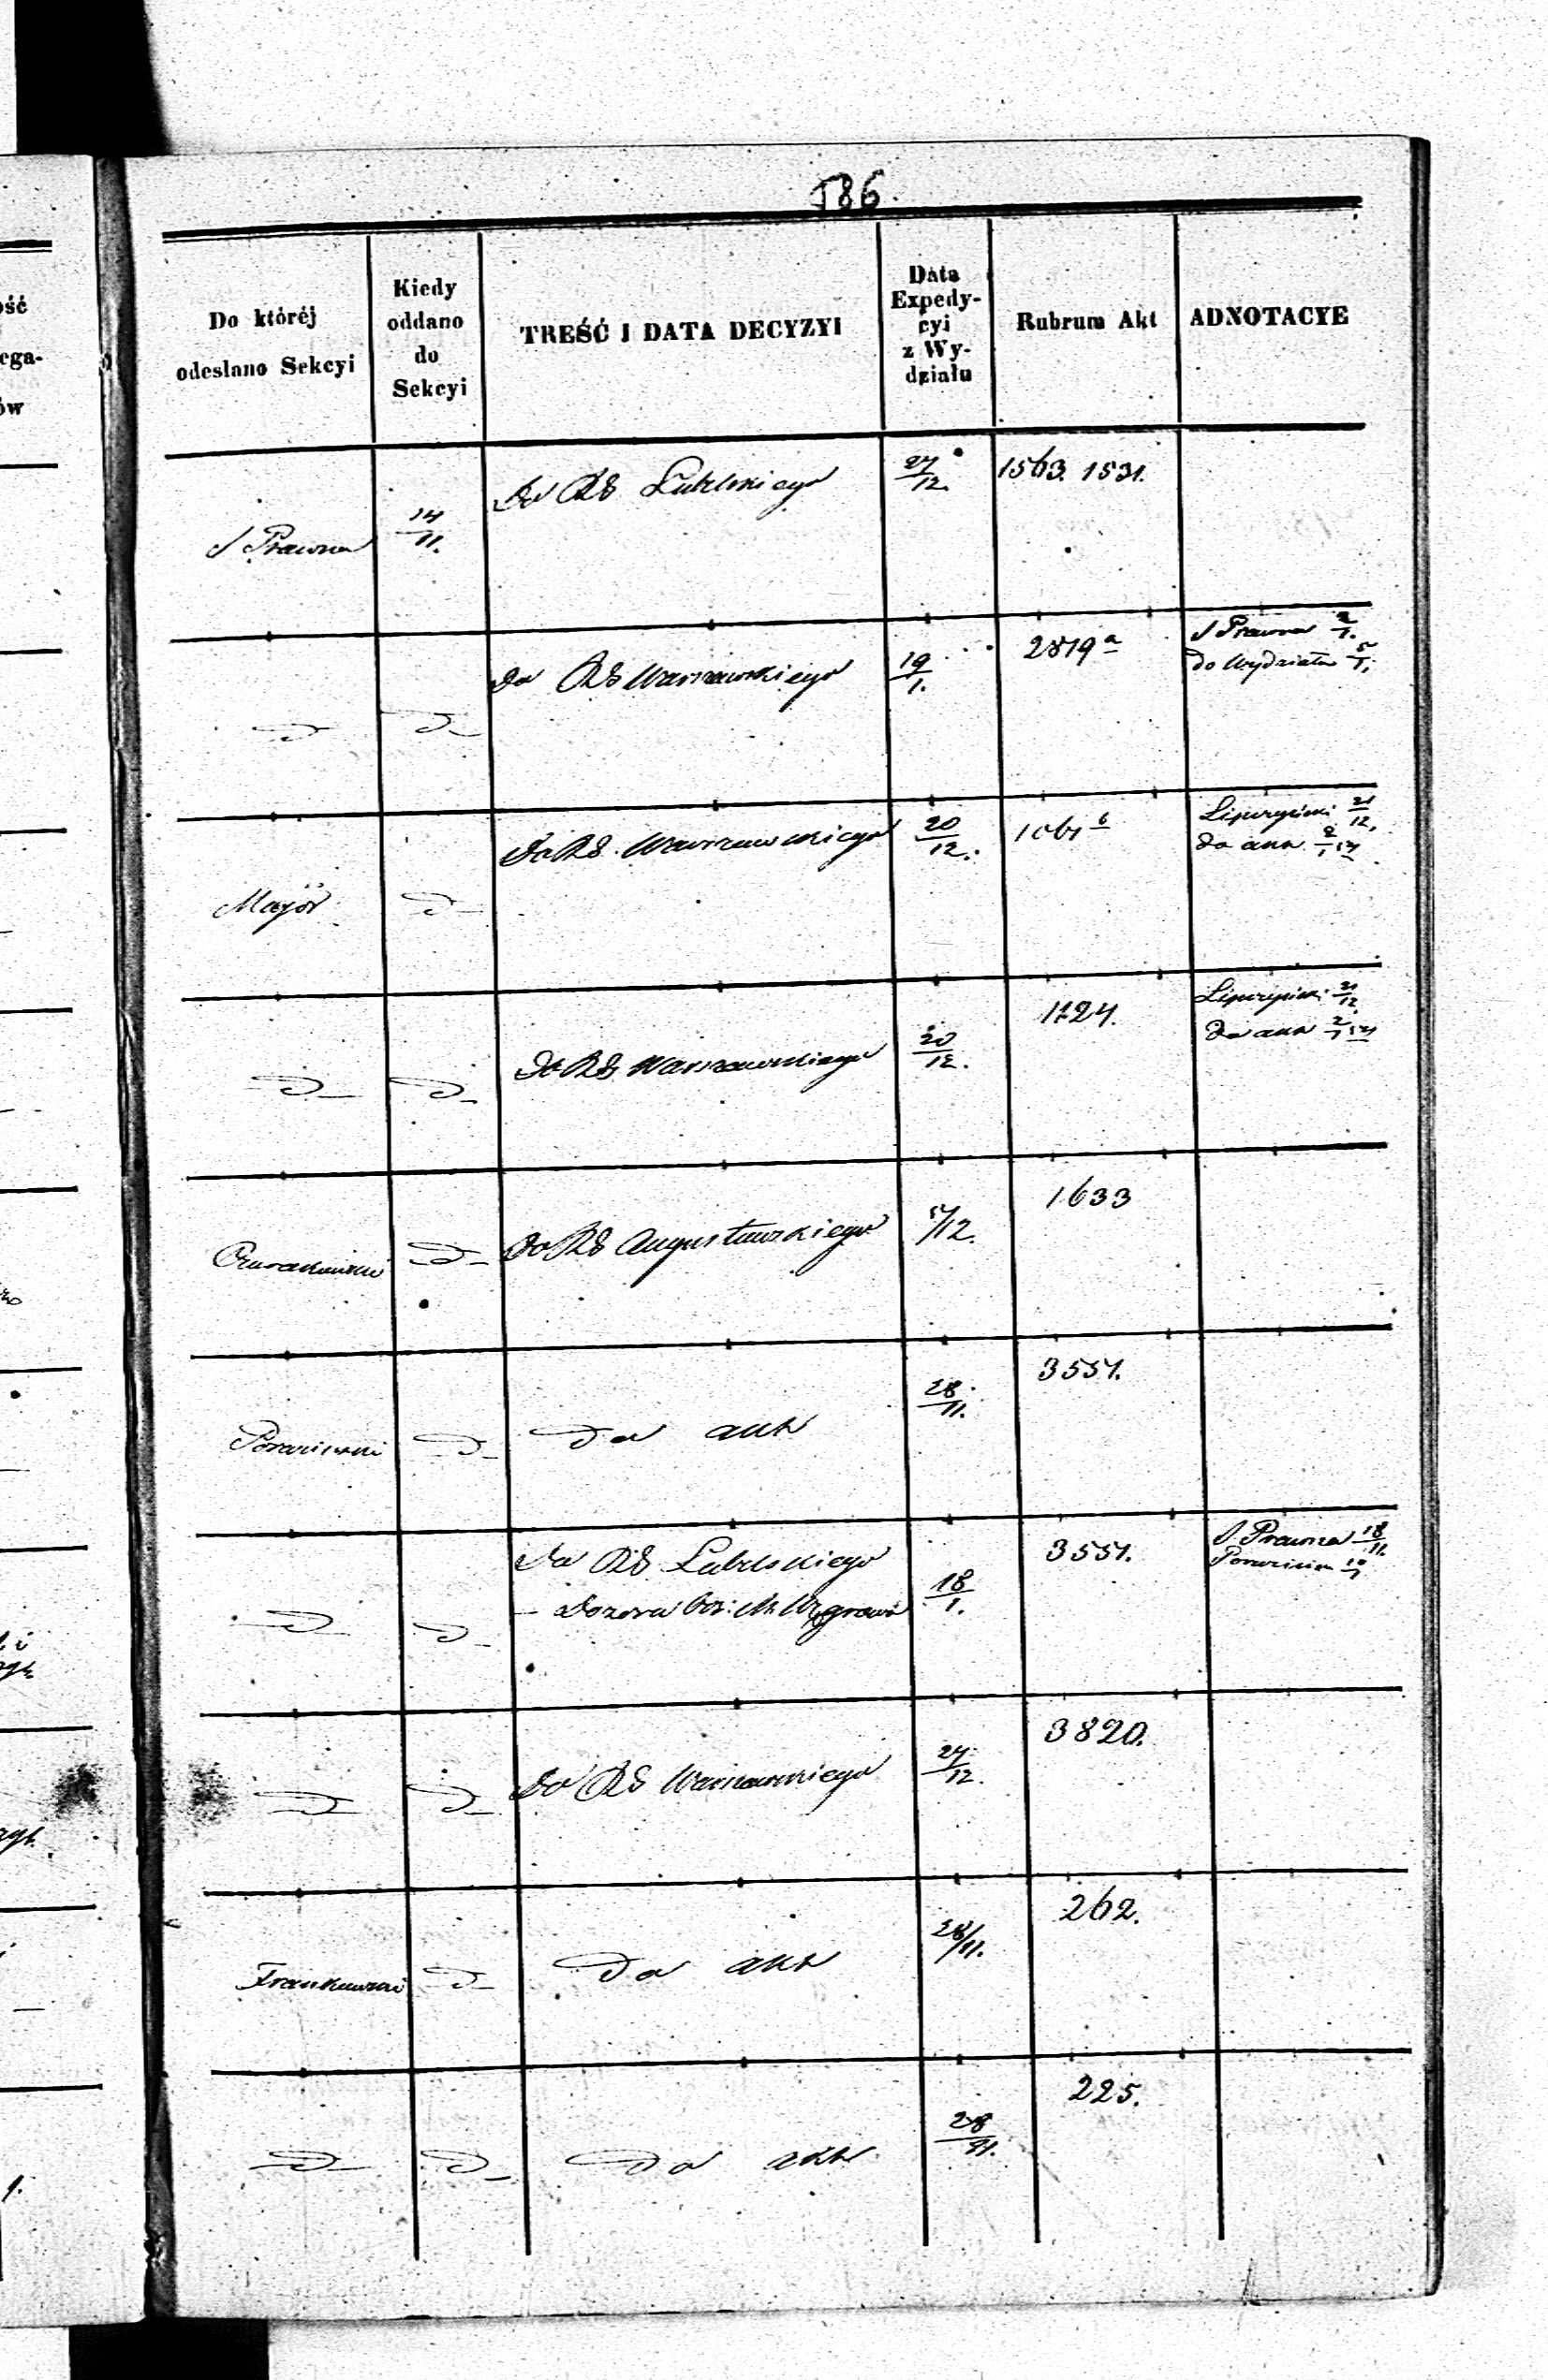 586.
Do któréj
odesłano Sekcyi
Kiedy
oddano
do
Sekcyi
TREŚĆ I DATA DECYZYI
Data
Expedy-
cyi
z Wy-
działu
Rubrum Akt
ADNOTACYE
S Prawna
14/11.
Do RG Lubelskiego
27/12.
1563. 1531.
Do RG Warszawskiego
19/1.
2819 a
S Prawna 2/1.
do Wydziału 5/1.
Major
Do RG Warszawskiego
20/12.
Do RG Warszawskiego
20/12.
1124.
21/12
Do RG Augustowskiego
/12.
1633
do akt
28/11.
3557.
Do RG Lubelskiego
– Dozoru Boż: M. Węgrowa
18/1.
3557.
S. Prawna 18/11.
Do RG Warszawskiego
27/12.
3820.
Frankowski
do akt
28/11.
262.
do akt
28/11.
225.